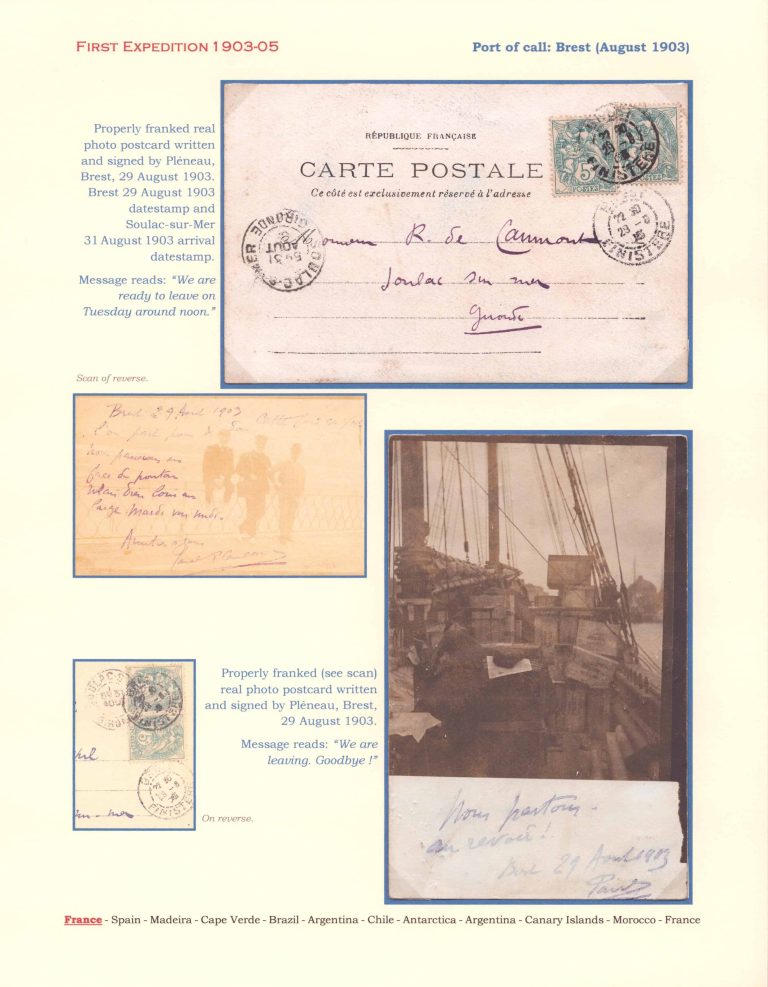 FIRST EXPEDITION 1903-05
Port of call: Brest (August 1903)
Properly franked real
photo postcard written
and signed by Pléneau,
Brest, 29 August 1903.
Brest 29 August 1903
datestamp and
Soulac-sur-Mer
31 August 1903 arrival
datestamp.
Message reads: “We are
ready to leave on
Tuesday around noon.”
RÉPUBLIQUE FRANÇAISE
CARTE POSTALE
Ce côté est exclusivement réservé à l'adresse
R. de Caumont
Soulac sur mer
Gironde
FINISTERE
FINISTERE
GIRONDE
31
AOUT
Scan of reverse.
Brest 29 Aout 1903
Properly franked (see scan)
real photo postcard written
and signed by Pléneau, Brest,
29 August 1903.
Message reads: “We are
leaving. Goodbye !”
FINISTERE
On reverse.
Nous partons
au revoir!
Brest 29 Aout 1903
Paul
France - Spain - Madeira - Cape Verde - Brazil - Argentina - Chile - Antarctica - Argentina - Canary Islands - Morocco - France